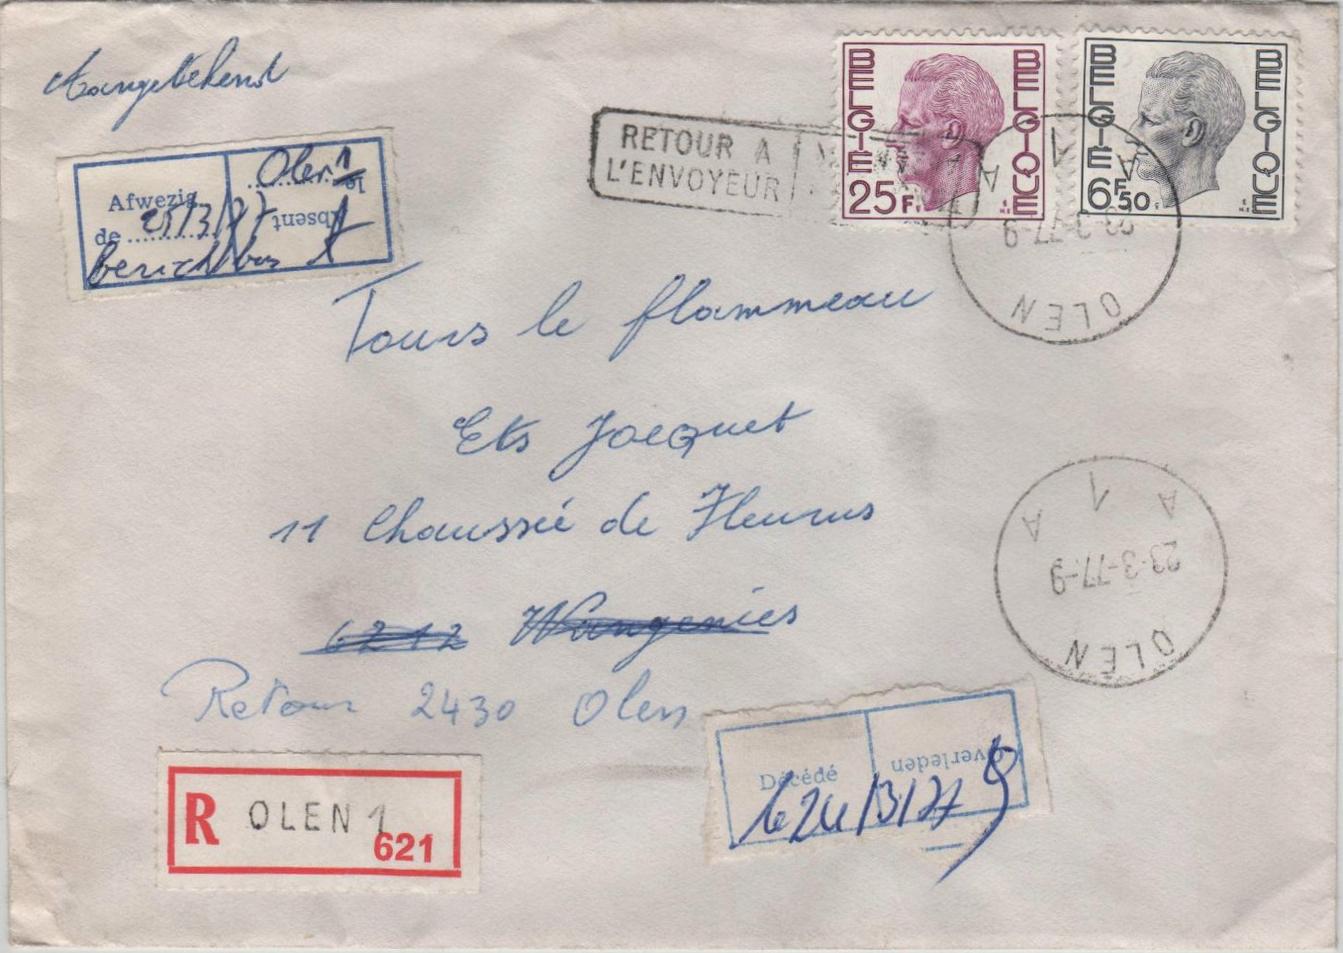 Aangetekend
RETOUR A
L'ENVOYEUR
BELGIE BELGIQUE
25F
BELGIE BELGIQUE
6F50
Afwezig
de 25/3/77
Olen 1
le
absent
berichtbus
23-3-77-9
OLEN
A 1 A
Tours le flammeau
Ets Jacquet
11 Chaussée de Fleurus
6212 Wangenies
Retour 2430 Olen
A 1 A
23-3-77-9
OLEN
R OLEN 1
621
Décédé
overleden
le 24/3/77